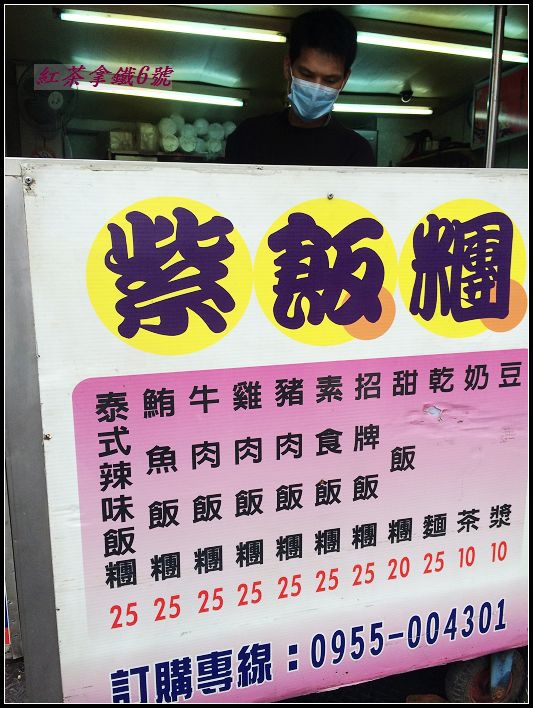 紅茶拿鐵6號
紫飯糰
泰式辣味飯糰 25
鮪魚飯糰 25
牛肉飯糰 25
雞肉飯糰 25
豬肉飯糰 25
素食飯糰 25
招牌飯糰 25
甜飯糰 20
乾麵 25
奶茶 10
豆漿 10
訂購專線：0955-004301